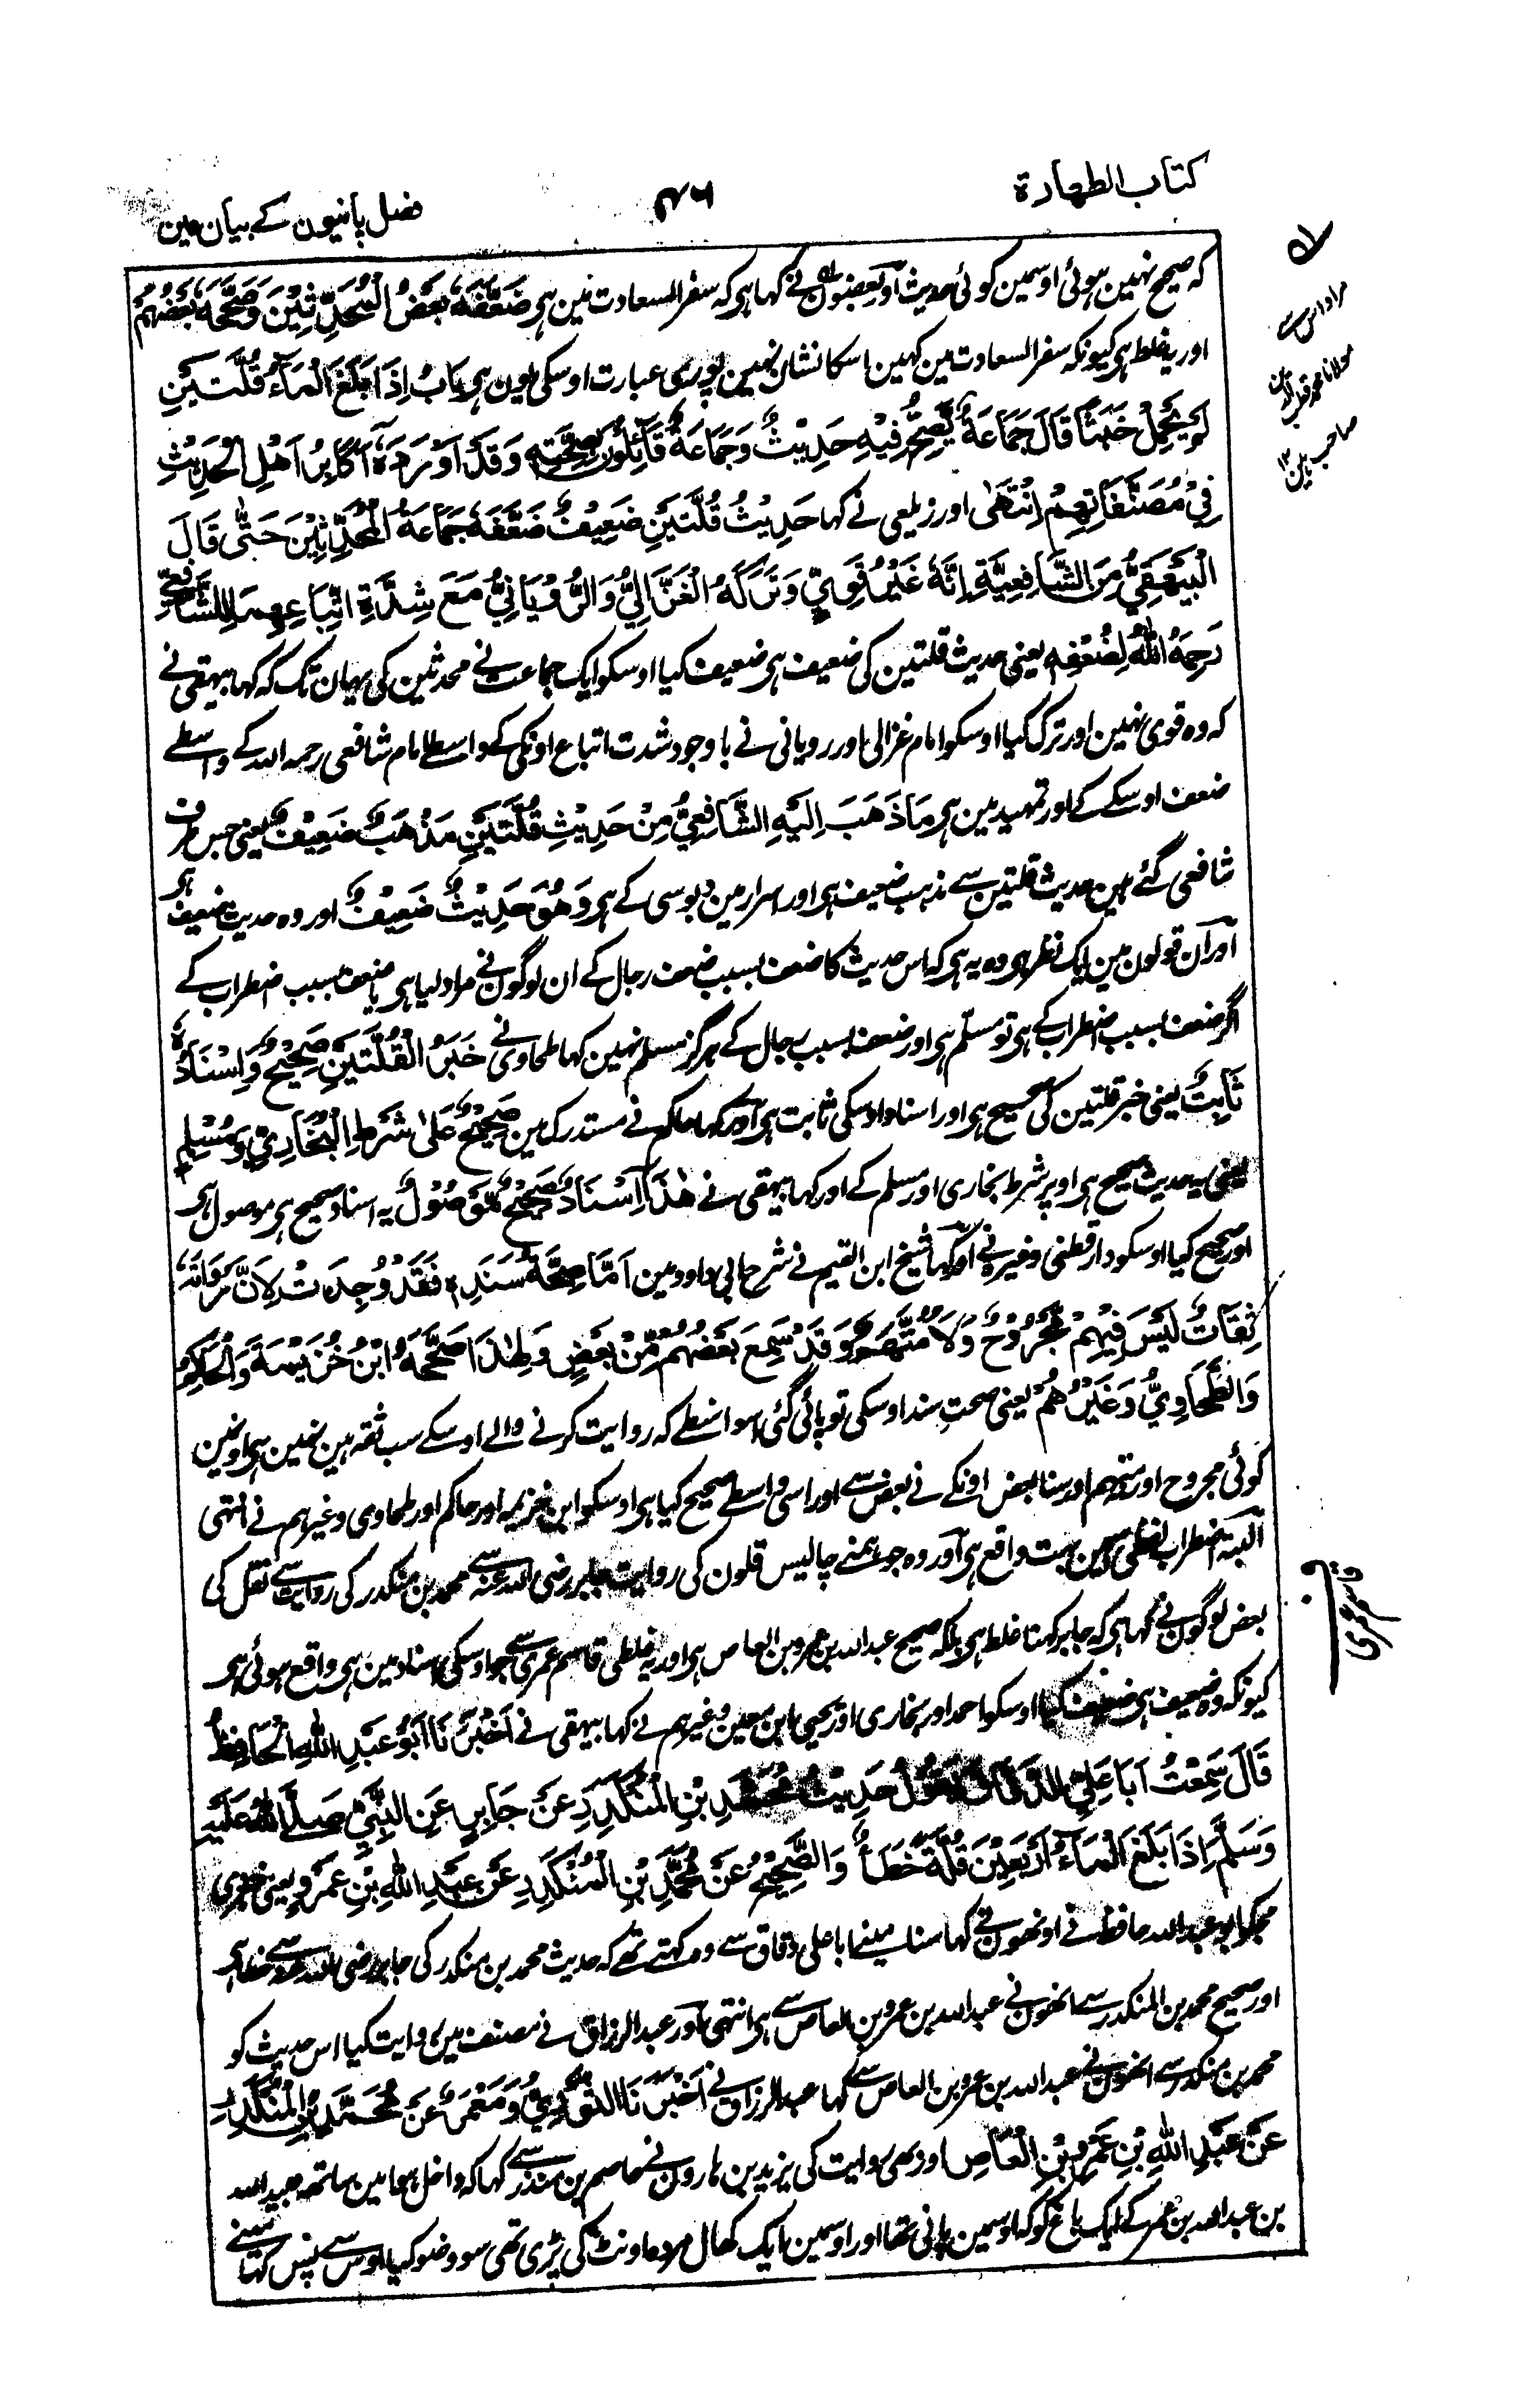 کتاب الطهارة
۴۶
فصل پانیون کے بیان مین
که صحیح نهین هوئی اوسمین کوئی حدیث اور بعضون نے کہا ہی که سفر السعادت مین ہی ضَعَّفَهٗ بَعْضُ الْمُحَدِّثِيْنَ وَصَحَّحَهٗ بَعْضُهُمْ
اور یه غلط ہی کیونکه سفر السعادت مین کہین اسکا نشان نهین پوری عبارت اوسکی یون ہی بَابُ اِذَا بَلَغَ الْمَآءُ قُلَّتَيْنِ
لَمْ يَحْمِلْ خَبَثًا قَالَ جَمَاعَةٌ لَمْ يَصِحَّ فِيْهِ حَدِيْثٌ وَجَمَاعَةٌ قَآئِلُوْنَ بِصِحَّتِهٖ وَقَدْ اَوْرَدَهٗ اَكَابِرُ اَهْلِ الْحَدِيْثِ
فِيْ مُصَنَّفَاتِهِمْ اِنْتَهٰى اور زیلعی نے کہا حَدِيْثُ قُلَّتَيْنِ ضَعِيْفٌ ضَعَّفَهٗ جَمَاعَةُ الْمُحَدِّثِيْنَ حَتّٰى قَالَ
الْبَيْهَقِيُّ مِنَ الشَّافِعِيَّةِ اِنَّهٗ غَيْرُ قَوِيٍّ وَتَرَكَهُ الْغَزَّالِيُّ وَالرُّوْيَانِيُّ مَعَ شِدَّةِ اتِّبَاعِهِمَا لِلشَّافِعِيِّ
رَحِمَهُ اللّٰهُ لِضُعْفِهٖ یعنی حدیث قلتین کی ضعیف ہی ضعیف کیا اوسکو ایک جماعت نے محدثین کی یہان تک که کہا بیہقی نے
که وه قوی نهین اور ترک کیا اوسکو امام غزالی اور رویانی نے باوجود شدت اتباع اونکی کے واسطے امام شافعی رحمه الله کے واسطے
ضعف اوسکے کے اور تمہید مین ہی مَا ذَهَبَ اِلَيْهِ الشَّافِعِيُّ مِنْ حَدِيْثِ قُلَّتَيْنِ مَذْهَبٌ ضَعِيْفٌ یعنی جس طرف
شافعی گئے ہین حدیث قلتین سے مذہب ضعیف ہی اور اسرار مین دبوسی کے ہی وَهُوَ حَدِيْثٌ ضَعِيْفٌ اور وه حدیث ضعیف ہی
اور ان قولون مین ایک نظر ہی وه یه ہی که اس حدیث کا ضعف بسبب ضعف رجال کے ان لوگون نے مراد لیا ہی یا ضعف بسبب اضطراب کے
اگر ضعف بسبب اضطراب کے ہی تو مسلّم ہی اور ضعف بسبب رجال کے ہرگز مسلم نهین کہا طحاوی نے خَبَرُ الْقُلَّتَيْنِ صَحِيْحٌ وَاِسْنَادُهٗ
ثَابِتٌ یعنی خبر قلتین کی صحیح ہی اور اسناد اوسکی ثابت ہی اور کہا حاکم نے مستدرک مین صَحِيْحٌ عَلٰى شَرْطِ الْبُخَارِيِّ وَمُسْلِمٍ
یعنی یه حدیث صحیح ہی اوپر شرط بخاری اور مسلم کے اور کہا بیہقی نے هٰذَا اِسْنَادٌ صَحِيْحٌ مَّوْصُوْلٌ یه اسناد صحیح ہی موصول ہی
اور صحیح کیا اوسکو دارقطنی وغیره نے اور کہا شیخ ابن القیم نے شرح ابی داود مین اَمَّا صِحَّةُ سَنَدِهٖ فَقَدْ وُجِدَتْ لِاَنَّ رُوَاتَهٗ
ثِقَاتٌ لَيْسَ فِيْهِمْ مَجْرُوْحٌ وَلَا مُتَّهَمٌ وَقَدْ سَمِعَ بَعْضُهُمْ مِّنْ بَعْضٍ وَلِهٰذَا صَحَّحَهُ ابْنُ خُزَيْمَةَ وَالْحَاكِمُ
وَالطَّحَاوِيُّ وَغَيْرُهُمْ یعنی صحت سند اوسکی تو پائی گئی اسواسطے که روایت کرنے والے اوسکے سب ثقه ہین نهین ہی اونمین
کوئی مجروح اور متہم اور سنا بعض اونکے نے بعض سے اور اسی واسطے صحیح کیا ہی اوسکو ابن خزیمه اور حاکم اور طحاوی وغیرہم نے انتہی
البته اضطراب لفظی اسمین بہت واقع ہی اور وه جو ہمنے چالیس قلون کی روایت جابر رضی الله عنه سے محمد بن منکدر کی روایت سے نقل کی
بعض لوگون نے کہا ہی که جابر کہنا غلط ہی بلکه صحیح عبدالله بن عمرو بن العاص ہی اور یه غلطی قاسم عمری سے جو اوسکی اسناد مین ہی واقع ہوئی ہی
کیونکه وه ضعیف ہی ضعیف کیا اوسکو احمد اور بخاری اور یحیی ابن معین وغیرہم نے کہا بیہقی نے اَخْبَرَنَا اَبُوْ عَبْدِ اللّٰهِ الْحَافِظُ
قَالَ سَمِعْتُ اَبَا عَلِيِّ الدَّقَّاقَ يَقُوْلُ حَدِيْثُ مُحَمَّدِ بْنِ الْمُنْكَدِرِ عَنْ جَابِرٍ عَنِ النَّبِيِّ صَلَّى اللّٰهُ عَلَيْهِ
وَسَلَّمَ اِذَا بَلَغَ الْمَآءُ اَرْبَعِيْنَ قُلَّةً خَطَأٌ وَالصَّحِيْحُ عَنْ مُحَمَّدِ بْنِ الْمُنْكَدِرِ عَنْ عَبْدِ اللّٰهِ بْنِ عَمْرٍو یعنی خبر دی
مجکو ابو عبدالله حافظ نے اونھون نے کہا سنا مینے ابا علی دقاق سے وه کہتے تھے که حدیث محمد بن منکدر کی جابر رضی الله عنه سے خطا ہی
اور صحیح محمد بن المنکدر سے انھون نے عبدالله بن عمرو بن العاص سے ہی انتہی اور عبدالرزاق نے مصنف مین روایت کیا اس حدیث کو
محمد بن منکدر سے انھون نے عبدالله بن عمرو بن العاص سے کہا عبدالرزاق نے اَخْبَرَنَا الثَّوْرِيُّ وَمَعْمَرٌ عَنْ مُحَمَّدِ بْنِ الْمُنْكَدِرِ
عَنْ عَبْدِ اللّٰهِ بْنِ عَمْرِو بْنِ الْعَاصِ اور بھی روایت کی یزید بن ہارون نے عاصم بن منذر سے کہا که داخل ہوا مین ساتھ عبیدالله
بن عبدالله بن عمر کے ایک باغ کو که اوسمین پانی تھا اور اوسمین ایک کھال مرده اونٹ کی پڑی تھی سو وضو کیا اوس سے پس کہا مینے
مراد اس سے
مولانا محمد قطب الدین
صاحب ہین ۱۲